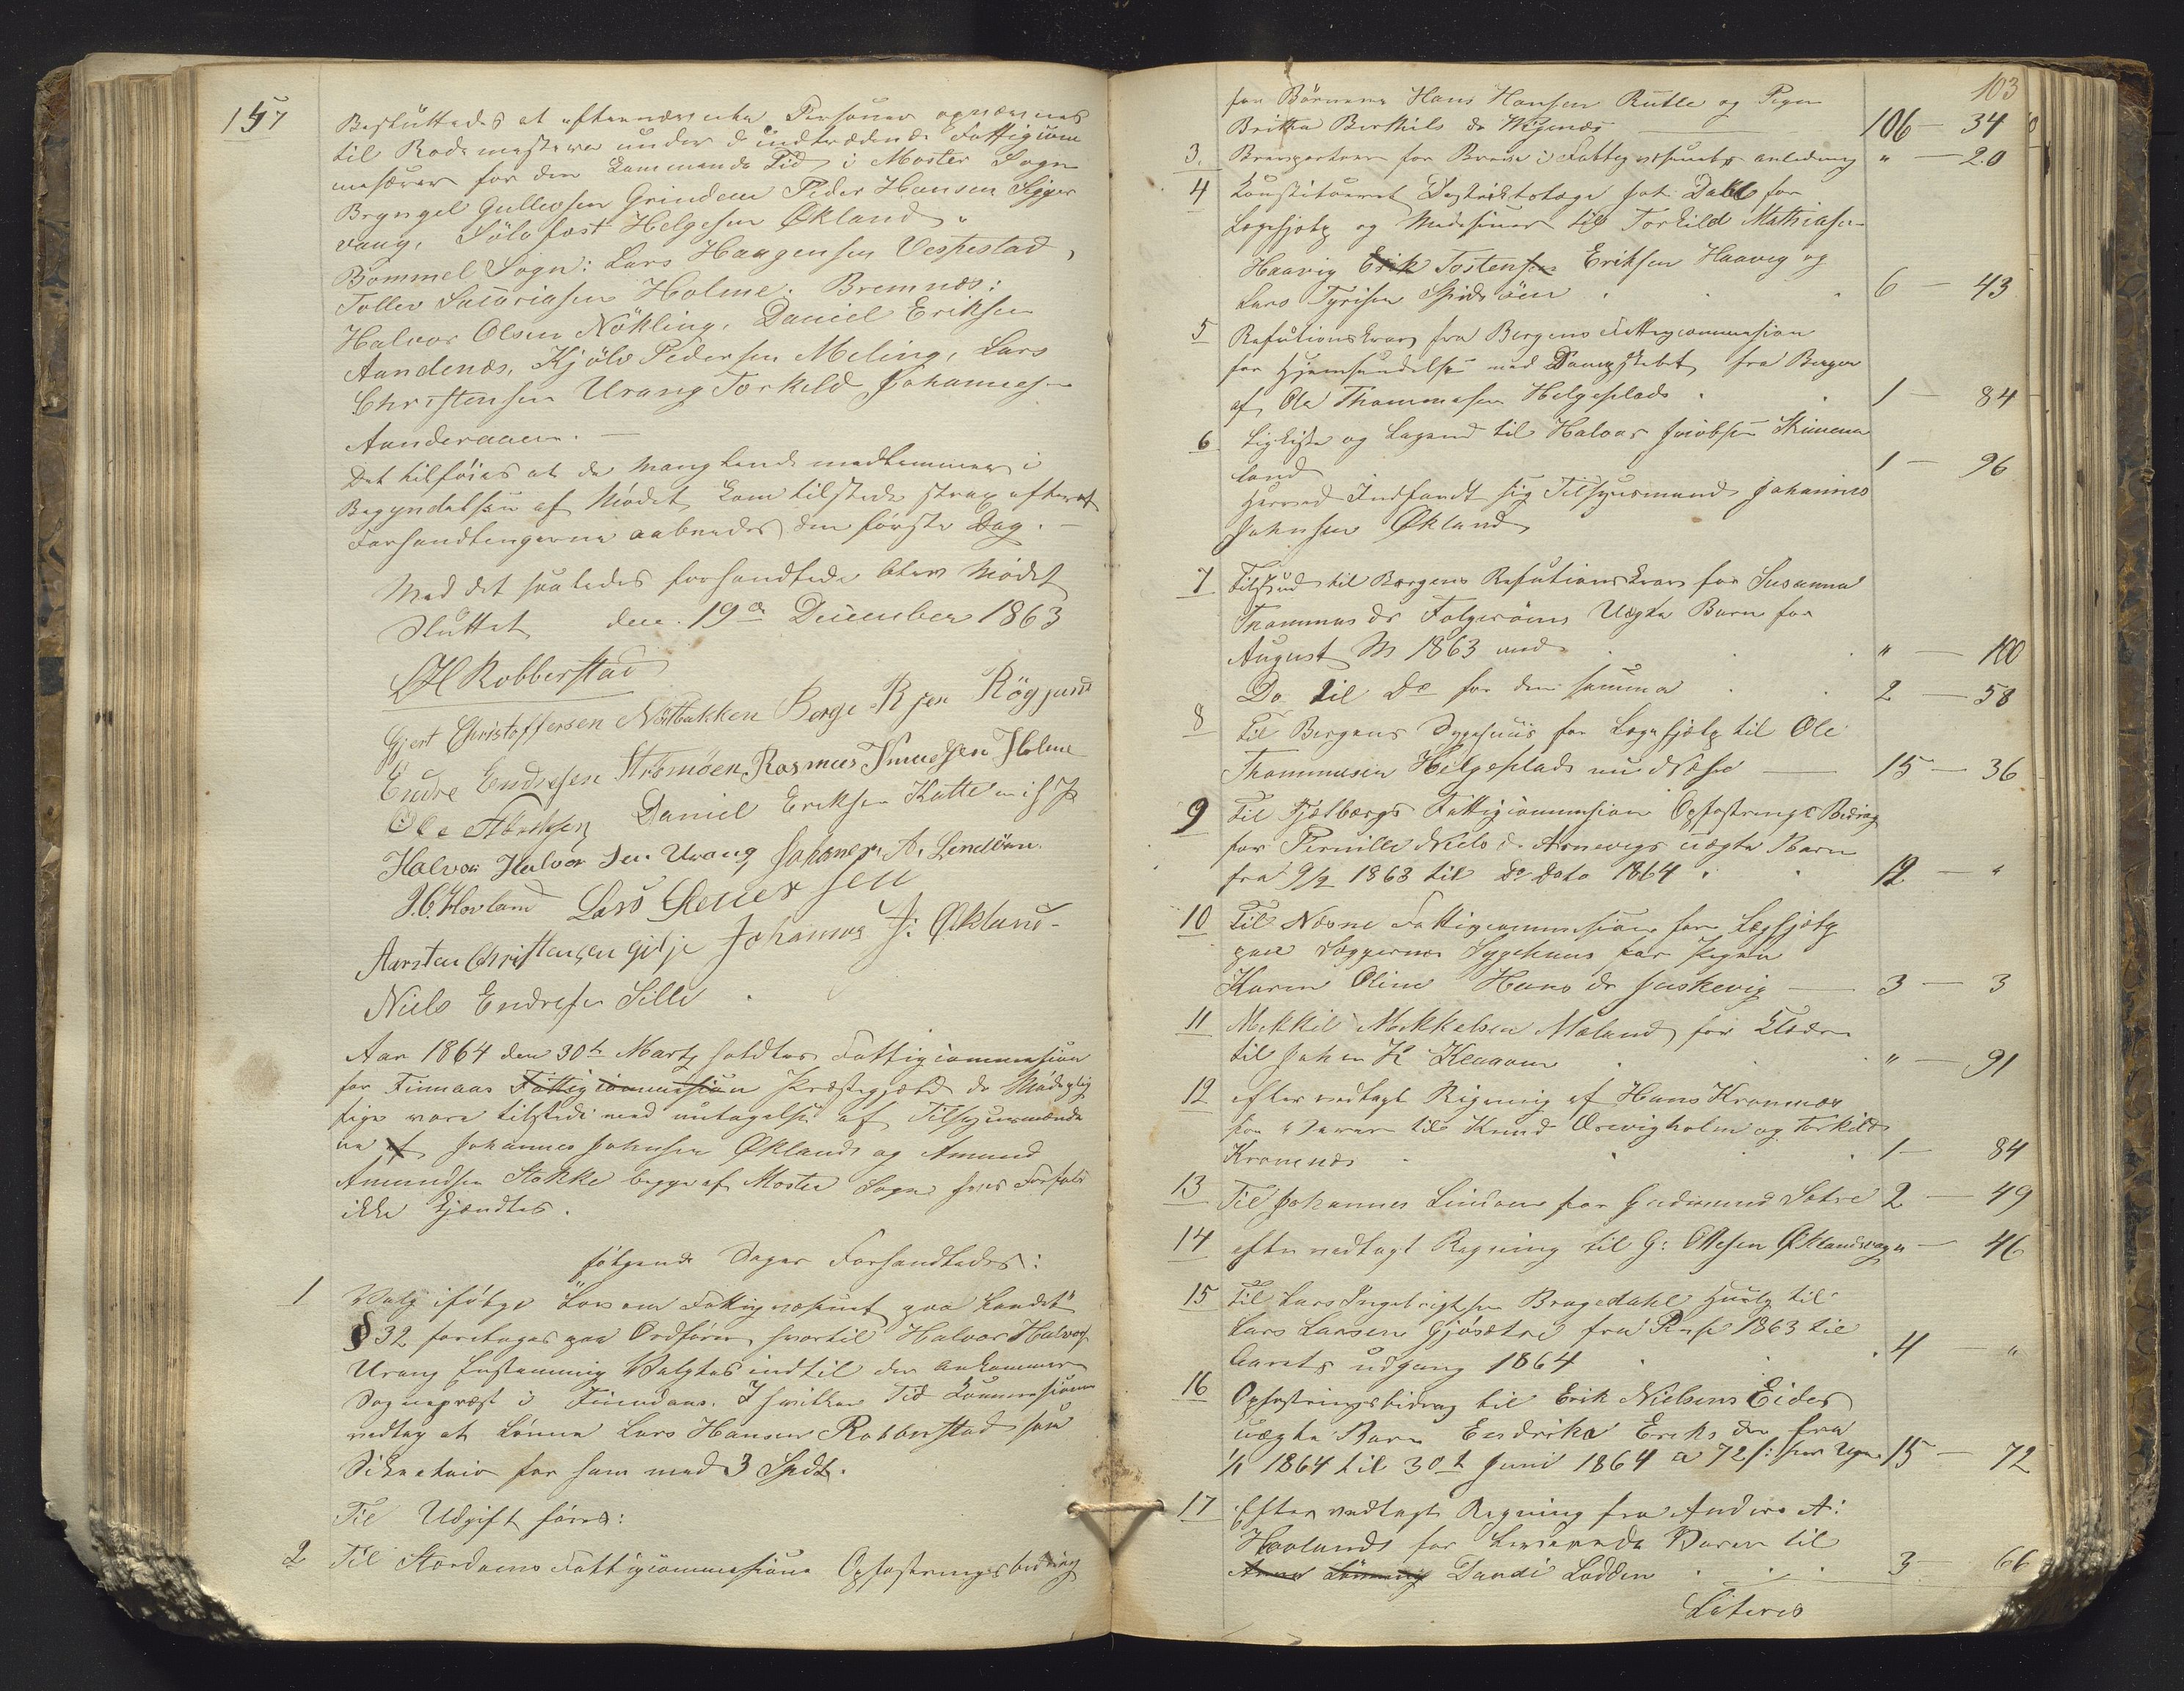 157
Besluttedes at efternævnte Personer opnævnes
til Rodemestere under d indtrædende Fattigcom
mesioner for den kommende Tid i Moster Sogn
Bryngel Gullevsen Grindem Peder Hansen Sigger
vaag, Sölvfast Helgesen Økland,
Bömmel Sogn: Lars Haagensen Vespestad,
Tollev Sacariasen Holme. Bremnes:
Halvor Olsen Nökling, Daniel Eriksen
Aandenæs, Kjölv Pedersen Meling, Lars
Christensen Urang Torkeld Johannes-
Aanderaaen. —
Det tilföies at de manglende medlemmer i
Begyndelsen af Mödet kom tilstede strax efterat
Forhandlingerne aabnedes den förste Dag. —
Med det saaledes forhandlede blev Mödet
Sluttet den. 19de December 1863
LH Robberstad
Gjert Christoffersen Nötbakken Børge R sen Rögjund
Endre Endresen Strömöen Rasmus Knudsen Holme
Ole Daniel Eriksen Katte
Halvor Halvor sen Urang Johannes A. Lendöen.
J. C. Hovland Lars
Aarsten Christensen Gilje Johannes J: Økland-
Niels Endresen Lille
Aar 1864 den 30te Marts holdtes Fattigcommesion
for Finnaas Fattigcommesion Præstegjeld de Mödeplig
tige vare tilstede med undtagelse af Tilsynsmænde
ne af Johannes Johnsen Økland og Amund
Amundsen Stokke begge af Moster Sogn hvis Forfald
ikke kjendtes.
følgende Sager Forhandledes:
1
Valg ifölge Lov om Fattigvæsenet paa Landet
§ 32 foretages paa Ordförer hvortil Halvor Halvors
Urang Enstemmig Valgtes indtil den ankommer
Sognepræst i Finndaas. I hvilken Tid Kommesionen
vedtog at Lönne Lars Hansen Robberstad som
Sekretair for ham med 3 Spdl.
Til Udgift föres:
2
Til Stordoens Fattigcommesion Opfostringsbidrag
103
for Börnene Hans Hansen Rutle og Pigen
Britha Berthils dr Vignæs 106 — 34
3. Brevporto for Breve i Fattigvesenets anledning " — 20
4 Constitueret Destriktslæge Joh: Dahl for
Lægehjelp og Medesiner til Torkild Mathiasen
Haavig Erik Tostensen Eriksen Haaveg og
Lars Tyrisen Spidsöen . 6 — 43
5 Refusionskrav fra Bergens Fattigcommesion
for Hjemsendelse med Dampskibet fra Bergen
af Ole Thommesen Helgeplads . 1 — 84
6 Ligkiste og Lagend til Halvor Jacobsen Stunena
land 1 — 96
Herved Indfandt sig Tilsynsmand Johannes
Johnsen Økland
7 Tilskud til Bergens Refusionskrav for Susanna
Thommas dr Folgeröens Uægte Barn for
August M 1863 med . " — 100
Do til Do for den samme . 2 — 58
8 Til Bergens Sygehuus for Lægehjelp til Ole
Thommesen Helgeplads 15 — 36
9 Til Fjelbergs Fattigcommesion Opfostrings Bidrag
for Pernille Niels dr Arnevigs uægte Barn
fra 9/9 1863 til Do Dato 1864 . 12 — "
10 Til Næsne Fattigcommesion for Læghjelp
paa Sygehuus for Pigen
Karen Oline Hans dr Juskevig — 3 — 3
11 Mekkel Mekkelsen Mæland for Klæder
til Johan K Klagom . " — 91
12 efter vedtagt Rigning af Hans Kronnæs
for Varer til Knud Orevigholm og Torkild
Kronenæs . 1 — 84
13 Til Johannes Lindoen for Gudmund Sætre 2 — 49
14 efter vedtagt Regning til G: Ottesen Øklandsvaag " — 46
15 Til Lars Ingebrigtsen Bragedahl Hjælp til
Lars Larsen Gjösætre fra 1863 til
Aarets udgang 1864 . 4 — "
16 Opfostringsbidrag til Erik Nielsens Eides
uægte Barn Endrikæ Eriks dr fra
1/1 1864 til 30te Juni 1864 a 72 s: per Ugen 15 — 72
17 Efter vedtagt Regning fra Anders A:
Hovland for Leverede Varer til
Dandi Lodden . 3 66
Lateres